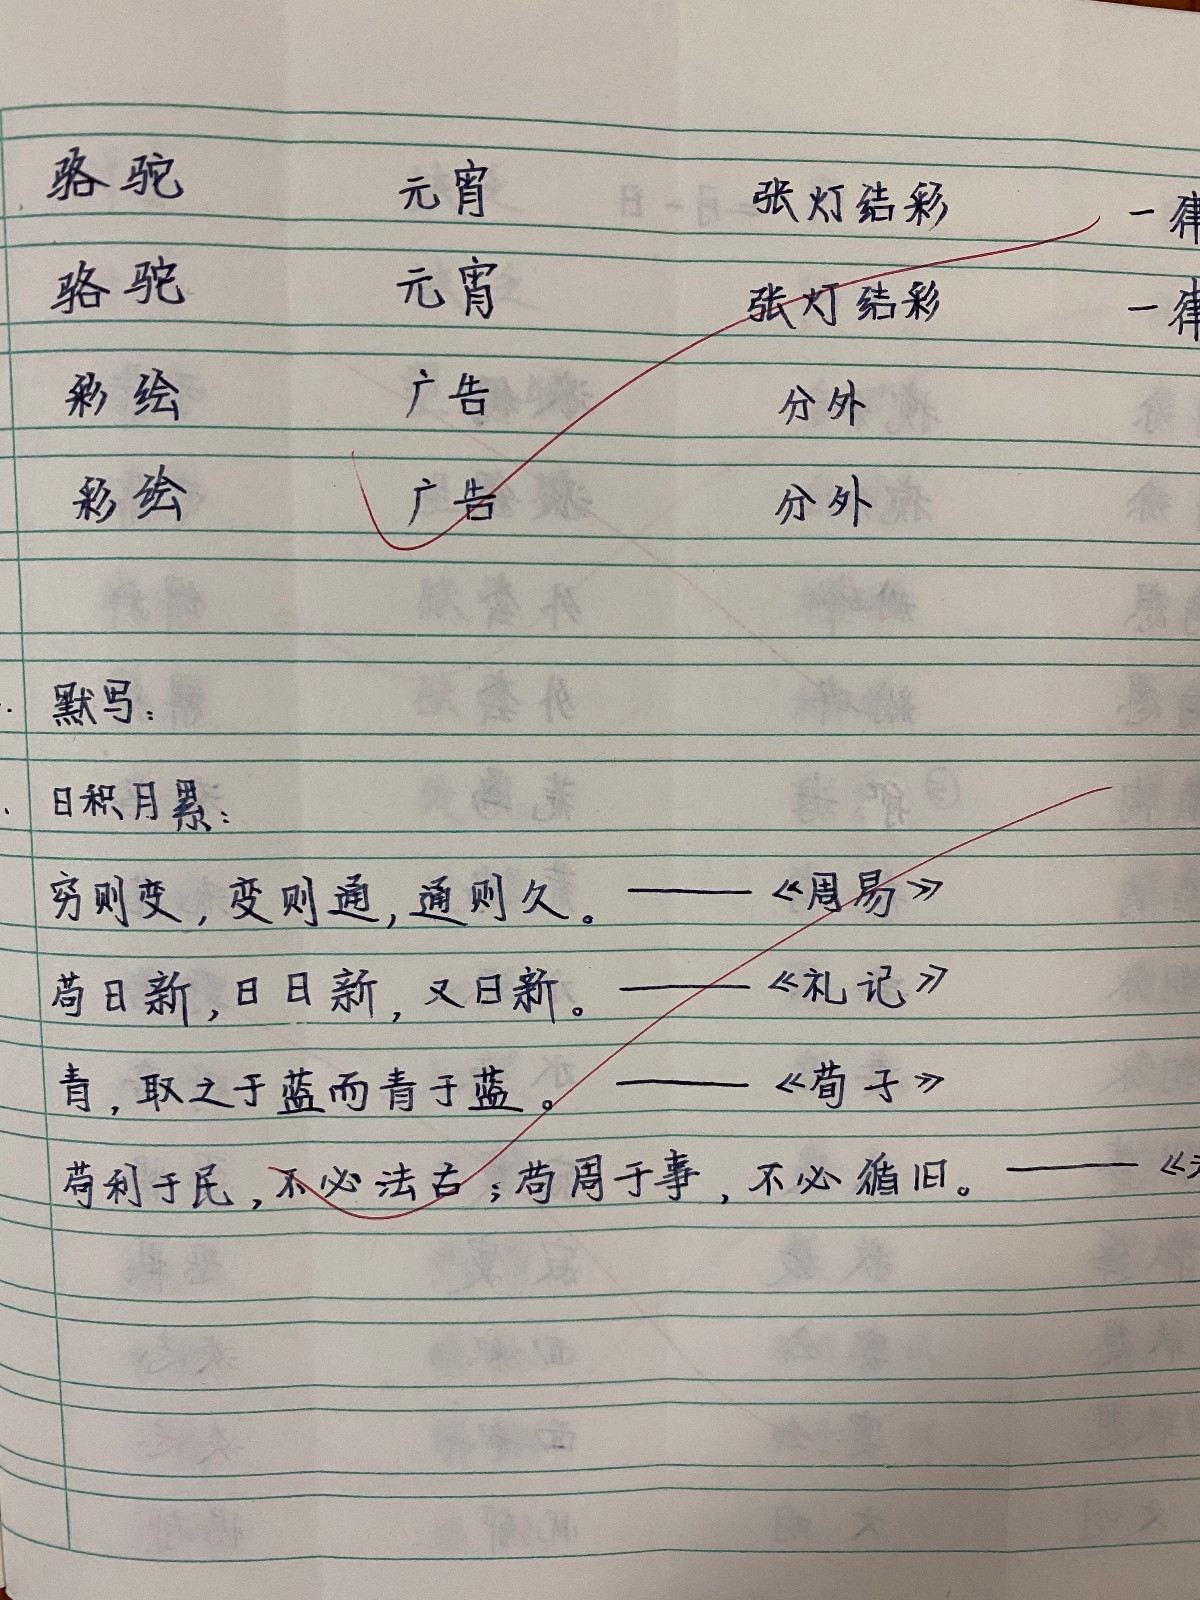 骆驼 元宵 张灯结彩 一律
骆驼 元宵 张灯结彩 一律
彩绘 广告 分外
彩绘 广告 分外
默写：
日积月累：
穷则变，变则通，通则久。——《周易》
苟日新，日日新，又日新。——《礼记》
青，取之于蓝而青于蓝。——《荀子》
苟利于民，不必法古；苟周于事，不必循旧。——《